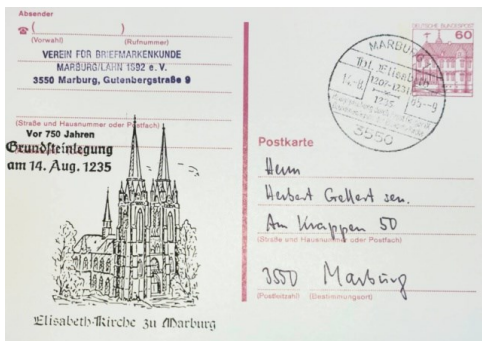 Absender
☎ ( )
(Vorwahl) (Rufnummer)
VEREIN FÜR BRIEFMARKENKUNDE
MARBURG/LAHN 1892 e. V.
3550 Marburg, Gutenbergstraße 9
(Straße und Hausnummer oder Postfach)
Vor 750 Jahren
Grundsteinlegung
am 14. Aug. 1235
Elisabeth-Kirche zu Marburg
DEUTSCHE BUNDESPOST
60
MARBURG
Hl. Elisabeth
1207-1231
14.-8. 85.-9
1235
3550
Postkarte
Herrn
Herbert Gellert sen.
Am Krappen 50
(Straße und Hausnummer oder Postfach)
3550 Marburg
(Postleitzahl) (Bestimmungsort)